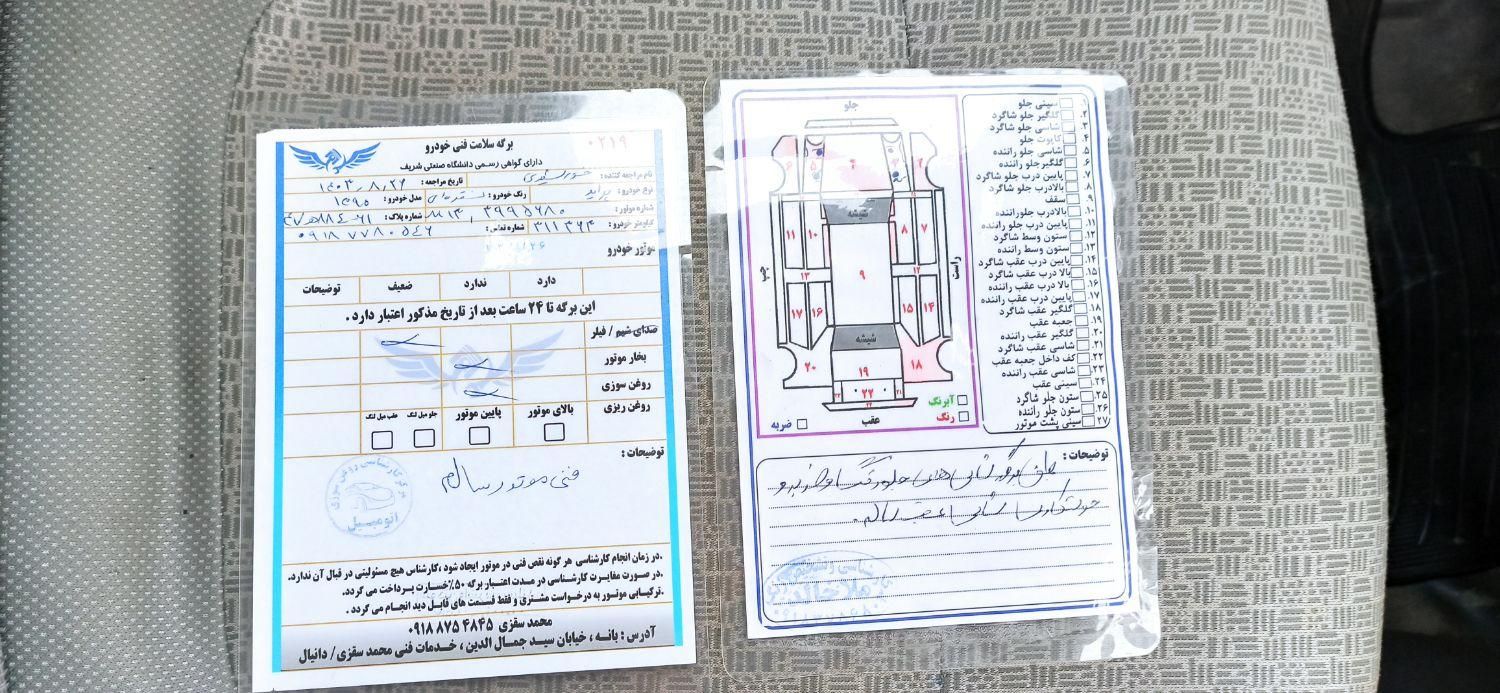 برگه سلامت فنی خودرو
۰۲۱۹
دارای گواهی رسمی دانشگاه صنعتی شریف
نام مراجعه کننده: تاریخ مراجعه: ۱۴۰۳,۸,۲۶
نوع خودرو: پراید رنگ خودرو: نقره‌ای مدل خودرو: ۱۳۹۵
شماره موتور: M13, ۳۹۹۵۶۸۰ شماره پلاک:
کیلومتر خودرو: ۳۱۱۳۶۴ شماره تماس: ۰۹۱۸۷۷۸۰۵۴۶
موتور خودرو
دارد ندارد ضعیف توضیحات
این برگه تا ۲۴ ساعت بعد از تاریخ مذکور اعتبار دارد .
صدای شیم / فیلر
بخار موتور
روغن سوزی
روغن ریزی بالای موتور پایین موتور جلو میل لنگ عقب میل لنگ
توضیحات :
فنی موتور سالم
مرکز کارشناسی روغن سوزی
اتومبیل
.در زمان انجام کارشناسی هر گونه نقص فنی در موتور ایجاد شود ،کارشناس هیچ مسئولیتی در قبال آن ندارد.
.در صورت مغایرت کارشناسی در مدت اعتبار برگه ۵۰٪خسارت پرداخت می گردد.
.ترکیبابی موتور به درخواست مشتری و فقط قسمت های قابل دید انجام می گردد .
محمد سقزی ۴۸۴۵ ۸۷۵ ۰۹۱۸
آدرس : بانه ، خیابان سید جمال الدین ، خدمات فنی محمد سقزی/ دانیال
جلو
۶ ۵ ۴ ۳ ۲
شیشه
۱۱ ۱۰ ۸ ۷
چپ ۹ راست
۱۳ ۱۲
۱۷ ۱۶ ۱۵ ۱۴
شیشه
۲۰ ۱۹ ۱۸
۲۲
عقب
آبرنگ
رنگ
ضربه
۱. سینی جلو
۲. گلگیر جلو شاگرد
۳. شاسی جلو شاگرد
۴. کاپوت جلو
۵. شاسی جلو راننده
۶. گلگیر جلو راننده
۷. پایین درب جلو شاگرد
۸. بالادرب جلو شاگرد
۹. سقف
۱۰. بالادرب جلوراننده
۱۱. پایین درب جلو راننده
۱۲. ستون وسط شاگرد
۱۳. ستون وسط راننده
۱۴. پایین درب عقب شاگرد
۱۵. بالا درب عقب شاگرد
۱۶. بالا درب عقب راننده
۱۷. پایین درب عقب راننده
۱۸. گلگیر عقب شاگرد
۱۹. جعبه عقب
۲۰. گلگیر عقب راننده
۲۱. شاسی عقب شاگرد
۲۲. کف داخل جعبه عقب
۲۳. شاسی عقب راننده
۲۴. سینی عقب
۲۵. ستون جلو شاگرد
۲۶. ستون جلو راننده
۲۷. سینی پشت موتور
توضیحات :
شاسی عقب سالم.